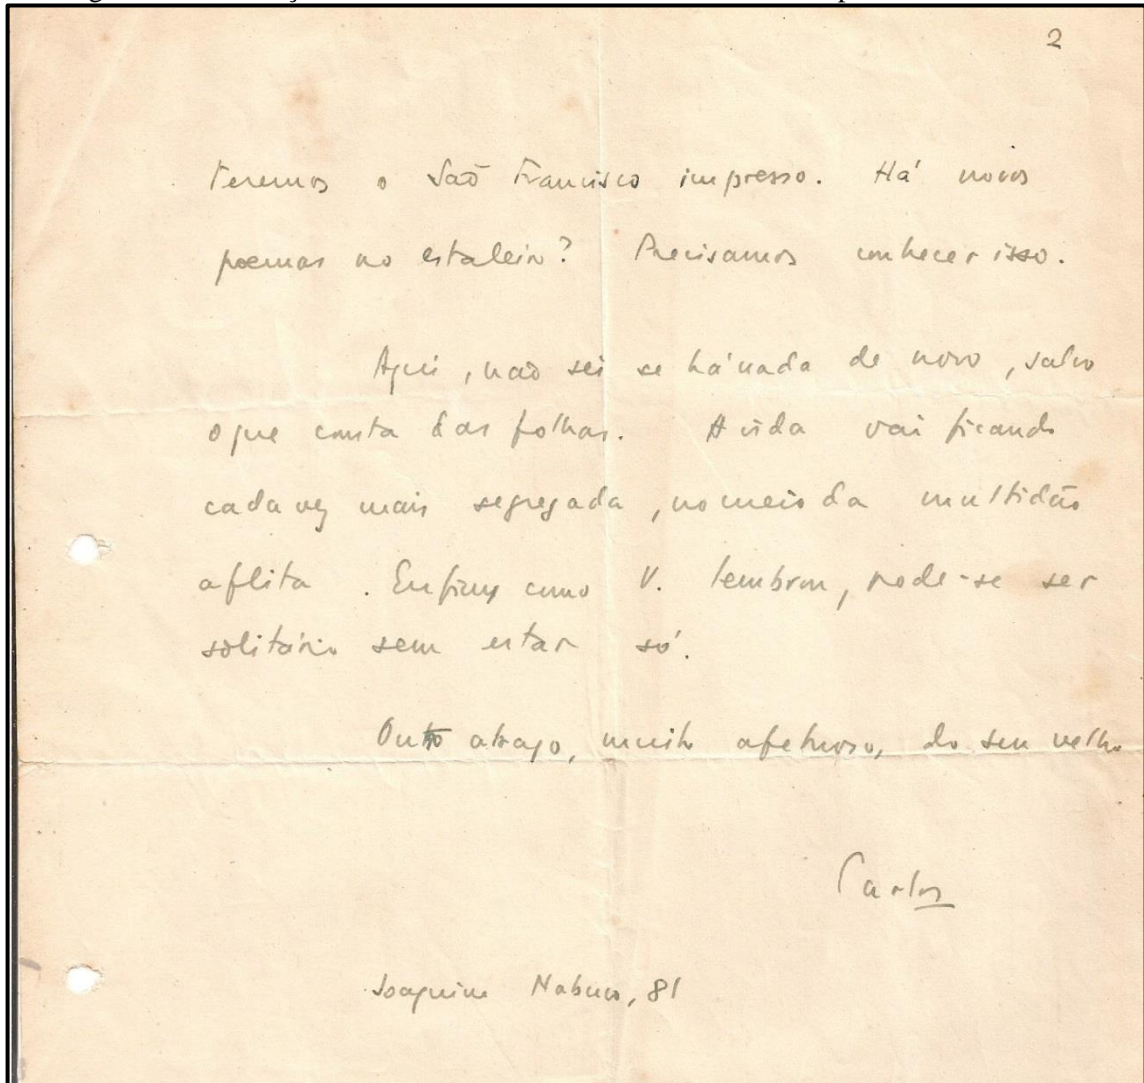 2
teremos o São Francisco impresso. Há novos
poemas no estaleiro? Precisamos conhecer isso.
Aqui, não sei se há nada de novo, salvo
o que consta das folhas. A vida vai ficando
cada vez mais segregada, no meio da multidão
aflita. Enfim, como V. lembrou, pode-se ser
solitário sem estar só.
Outro abraço, muito afetuoso, do seu velho
Carlos
Joaquim Nabuco, 81